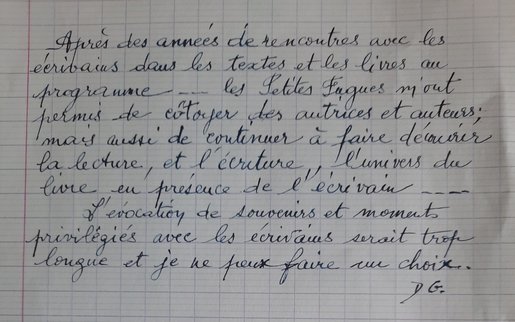 Après des années de rencontres avec les
écrivains dans les textes et les livres au
programme --- les Petites Fugues m'ont
permis de côtoyer des autrices et auteurs;
mais aussi de continuer à faire découvrir
la lecture, et l'écriture, l'univers du
livre en présence de l'écrivain ----
L'évocation de souvenirs et moments
privilégiés avec les écrivains serait trop
longue et je ne peux faire un choix.
D G.